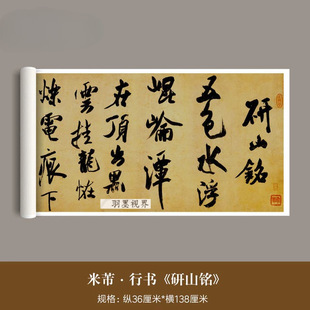 研山銘
五色水浮
崐崘潭
在頂出黑
雲挂龍怪
爍電痕下
羽墨视界
米芾·行书《研山铭》
规格：纵36厘米*横138厘米